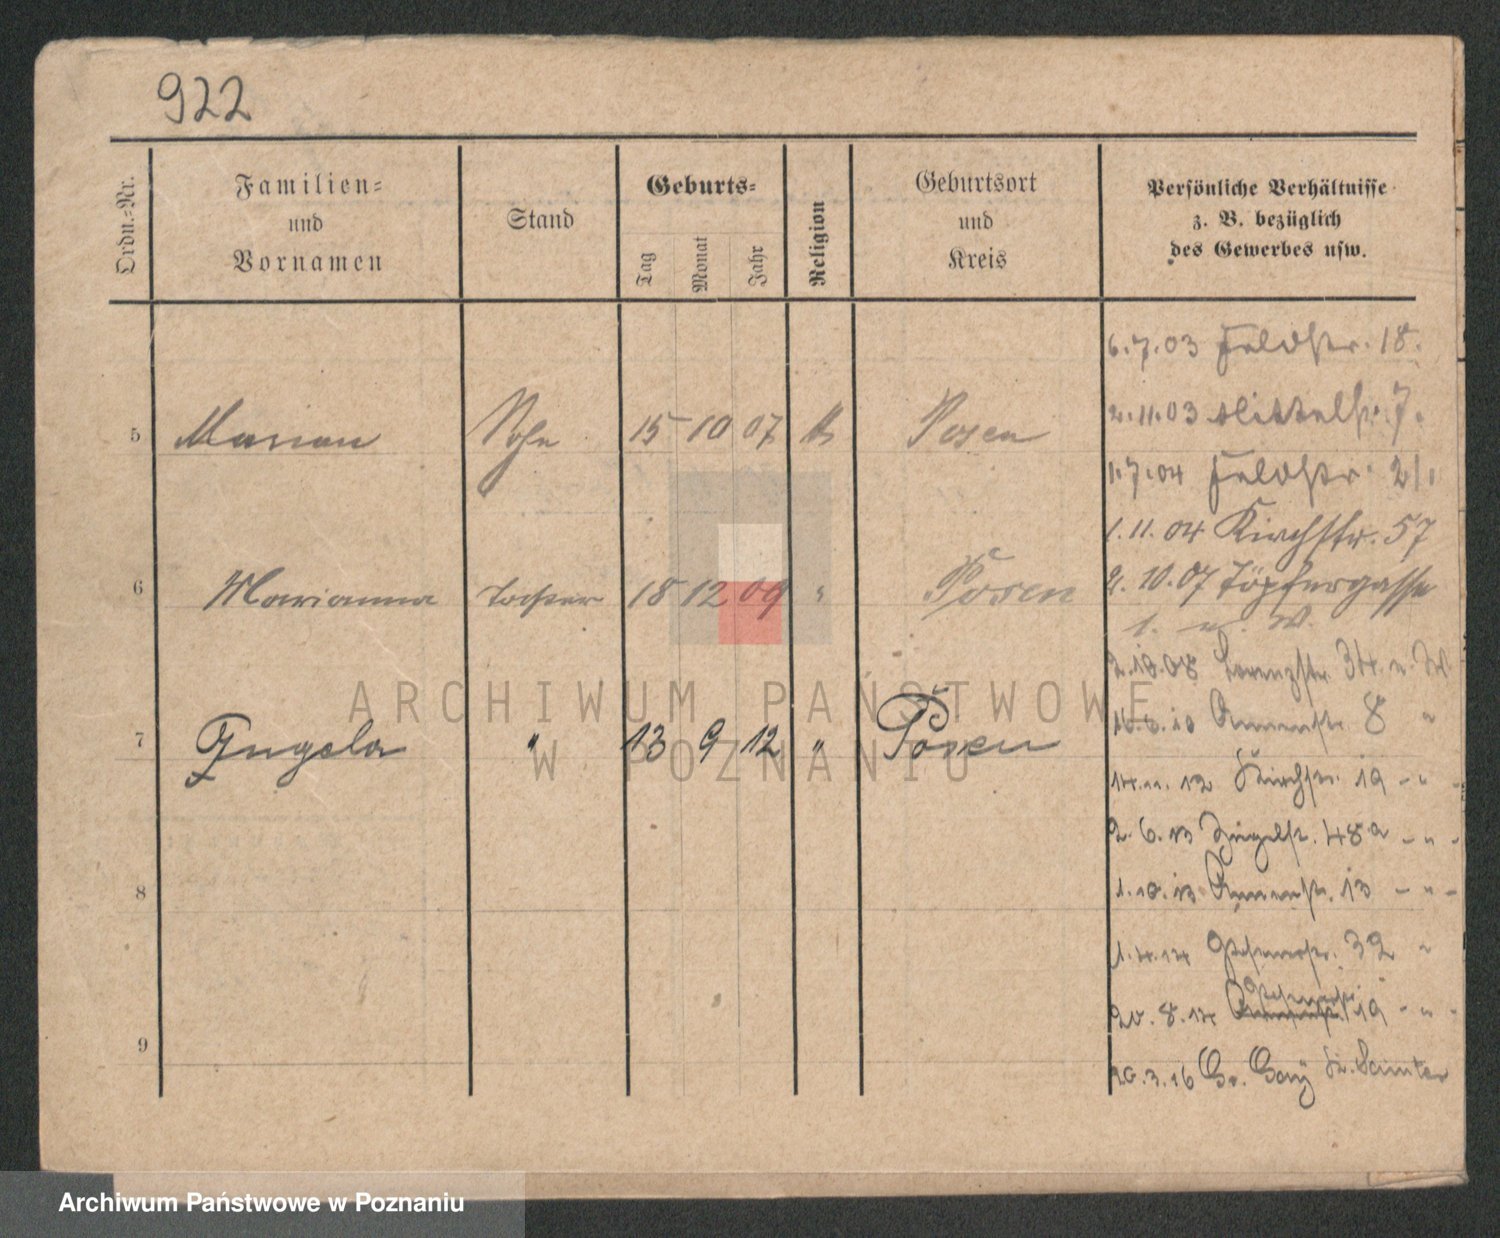 922
Ordn.-Nr.
Familien-
und
Vornamen
Stand
Geburts-
Tag
Monat
Jahr
Religion
Geburtsort
und
Kreis
Persönliche Verhältnisse
z. B. bezüglich
des Gewerbes usw.
6.7.03 Feldstr. 18.
2.11.03 Mittelstr. 7.
5 Marian Sohn 15 10 07 k Posen
1.7.04 Feldstr. 21.
1.11.04 Kirchstr. 57
2.10.07 Töpfergasse
6 Marianna Tochter 18 12 09 " Posen
1. u. W.
2.10.08 Lorenzstr. 34. u. W
8 "
7 " 13 9 12 " Posen
14.11.12 Kirchstr. 19 - " -
2.6.13 Ziegelstr. 48a - " -
8
1.10.13 13 - " -
1.4.14 32 "
20.8.14 19 - " -
9
20.3.16 Gr. Gay Kr. Samter
ARCHIWUM PAŃSTWOWE
W POZNANIU
Archiwum Państwowe w Poznaniu